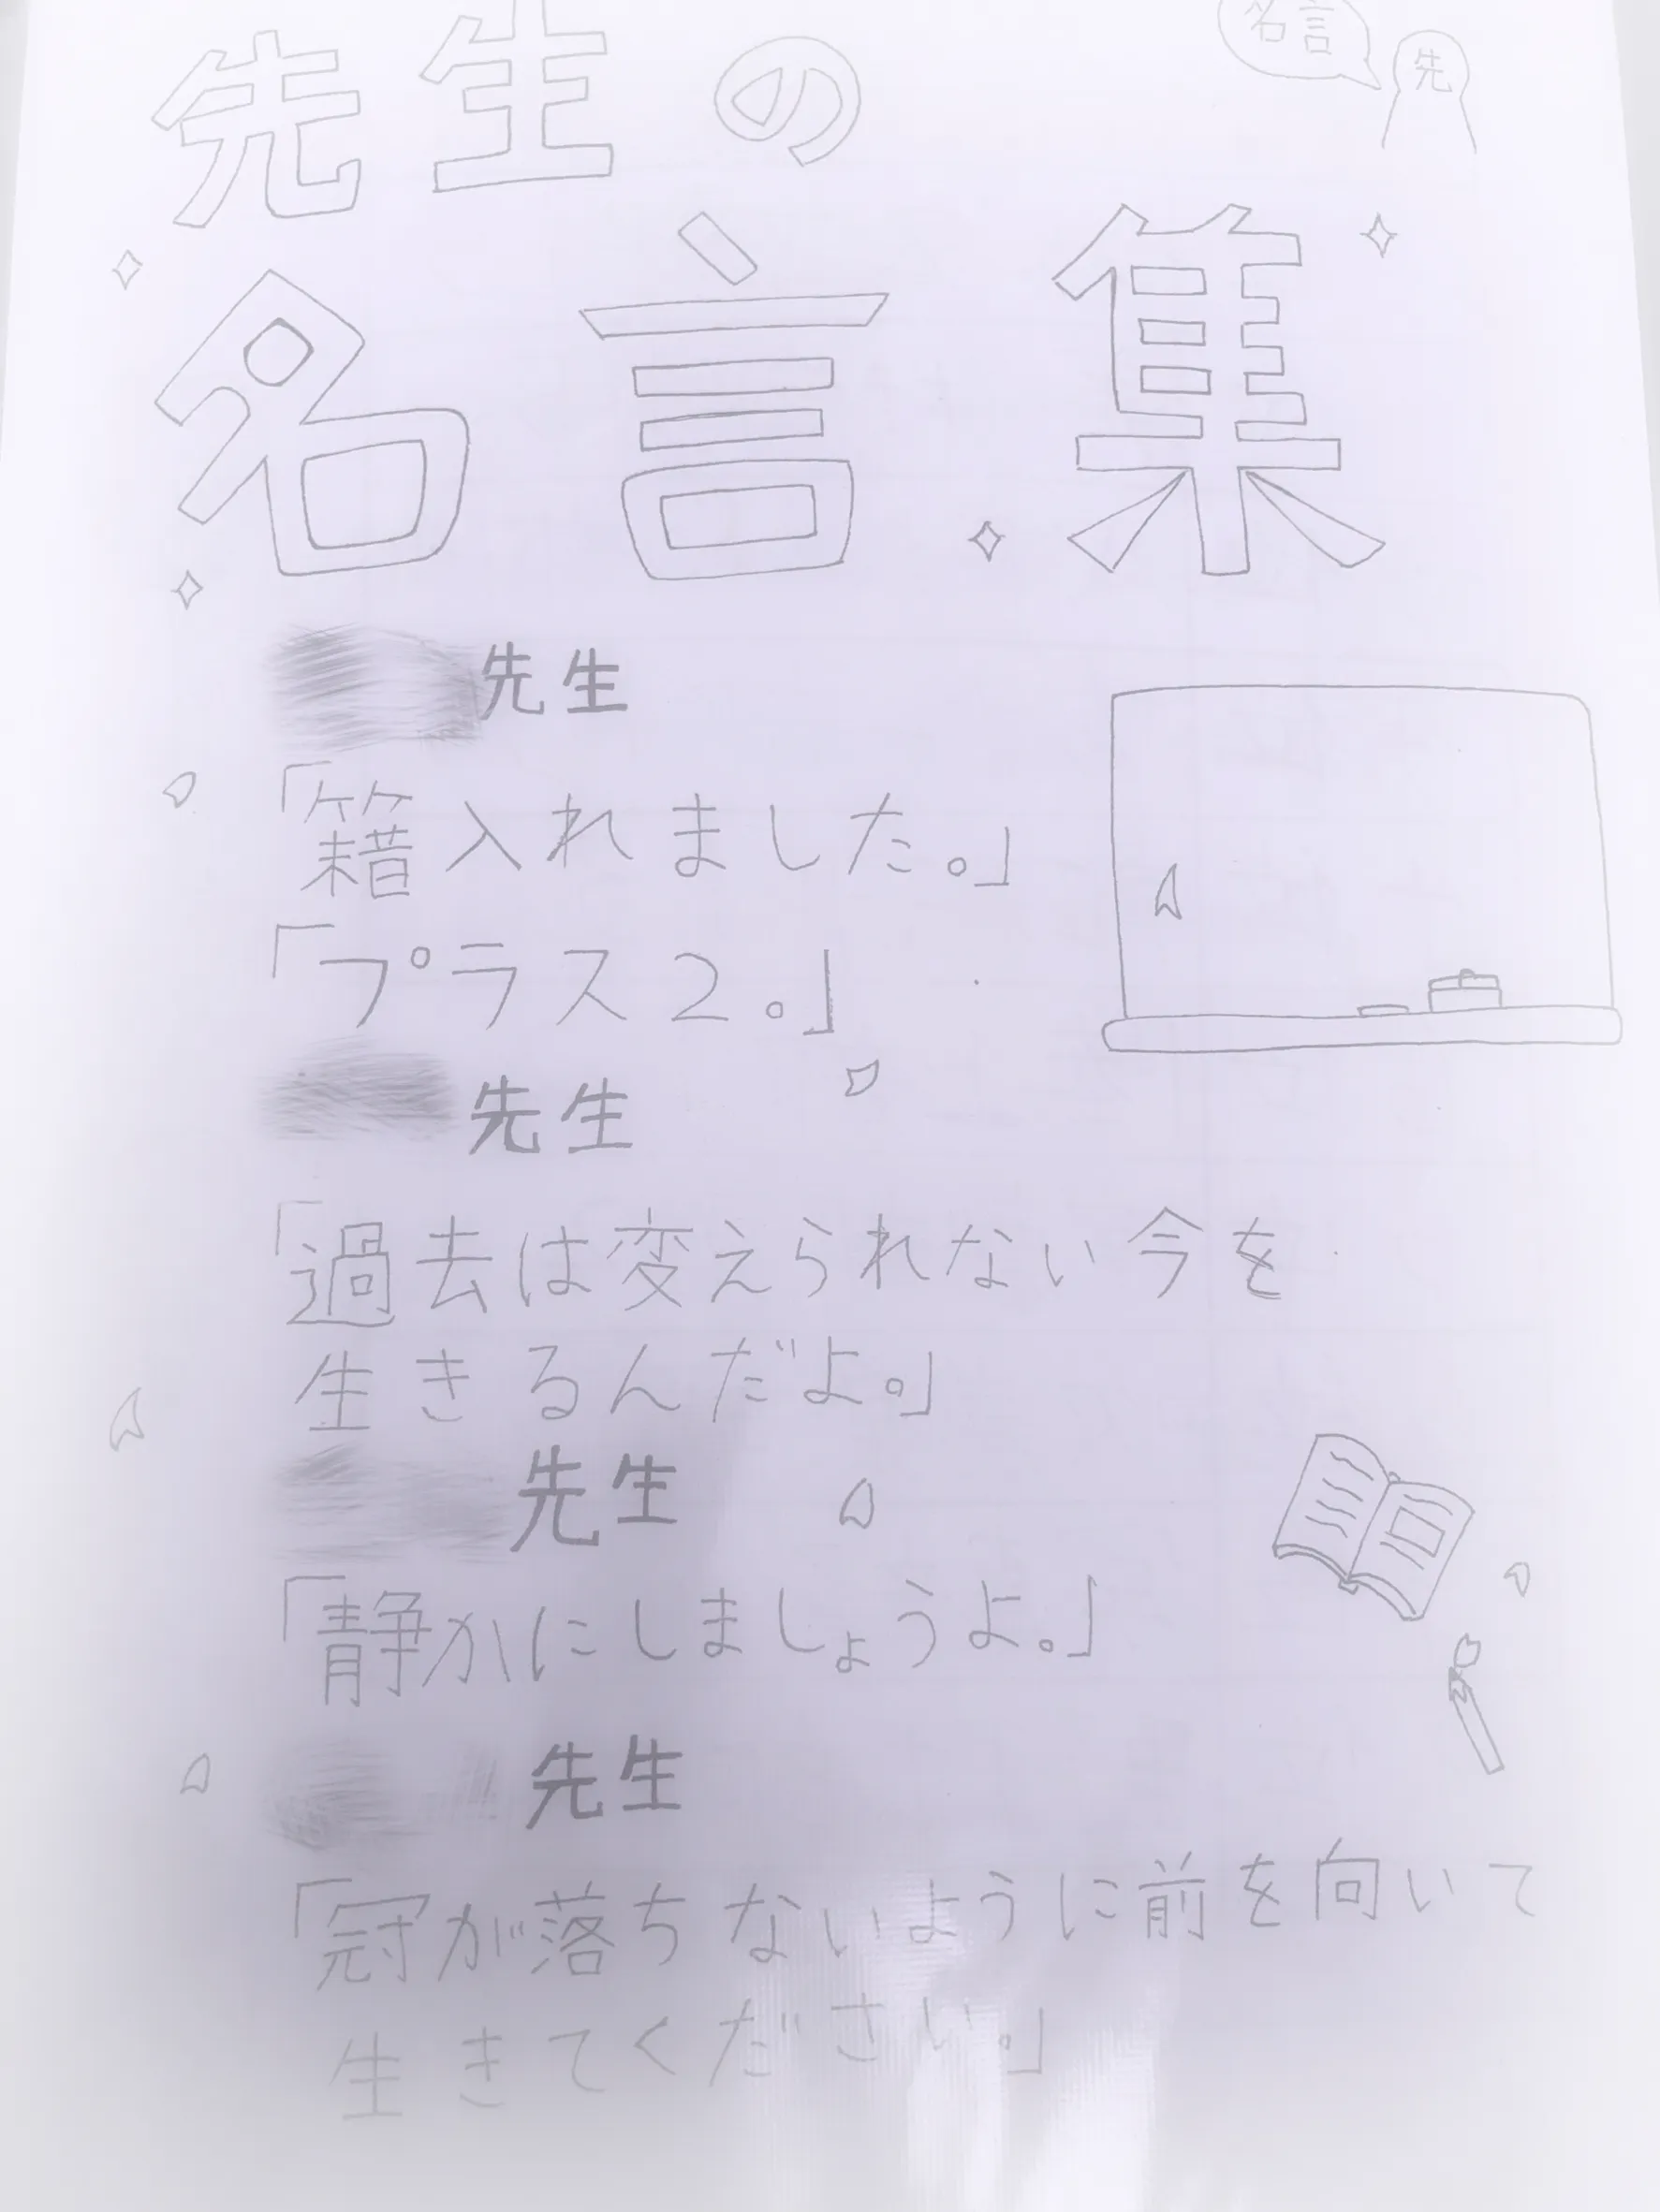 先生の
名言
先
名言集
先生
「籍入れました。」
「プラス2。」
先生
「過去は変えられない今を
生きるんだよ。」
先生
「静かにしましょうよ。」
先生
「冠が落ちないように前を向いて
生きてください。」